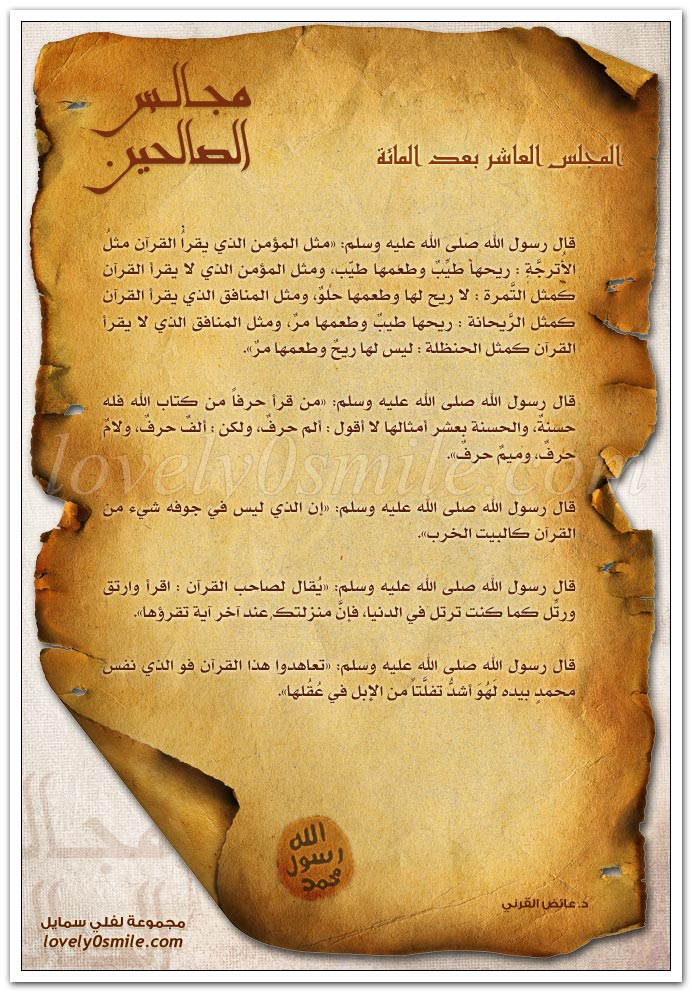 مجالس
الصالحين
المجلس العاشر بعد المائة
قال رسول الله صلى الله عليه وسلم: «مثل المؤمن الذي يقرأُ القرآن مثلُ
الأُترجَّةِ : ريحها طيِّبٌ وطعمها طيّب، ومثل المؤمن الذي لا يقرأ القرآن
كمثل التَّمرة : لا ريح لها وطعمها حلوٌ، ومثل المنافق الذي يقرأ القرآن
كمثل الرَّيحانة : ريحها طيبٌ وطعمها مرٌ، ومثل المنافق الذي لا يقرأ
القرآن كمثل الحنظلة : ليس لها ريحٌ وطعمها مرٌ».
قال رسول الله صلى الله عليه وسلم: «من قرأ حرفاً من كتاب الله فله
حسنةٌ، والحسنة بعشر أمثالها لا أقول : ألم حرفٌ، ولكن : ألفٌ حرفٌ، ولامٌ
حرفٌ، وميمٌ حرفٌ».
قال رسول الله صلى الله عليه وسلم: «إن الذي ليس في جوفه شيء من
القرآن كالبيت الخرب».
قال رسول الله صلى الله عليه وسلم: «يُقال لصاحب القرآن : اقرأ وارتق
ورتِّل كما كنت ترتل في الدنيا، فإنَّ منزلتك عند آخر آية تقرؤها».
قال رسول الله صلى الله عليه وسلم: «تعاهدوا هذا القرآن فو الذي نفس
محمدٍ بيده لَهُوَ أشدُّ تفلَّتاً من الإبل في عُقُلها».
lovely0smile.com
الله
رسول
محمد
د.عائض القرني
مجالس
مجموعة لفلي سمايل
lovely0smile.com